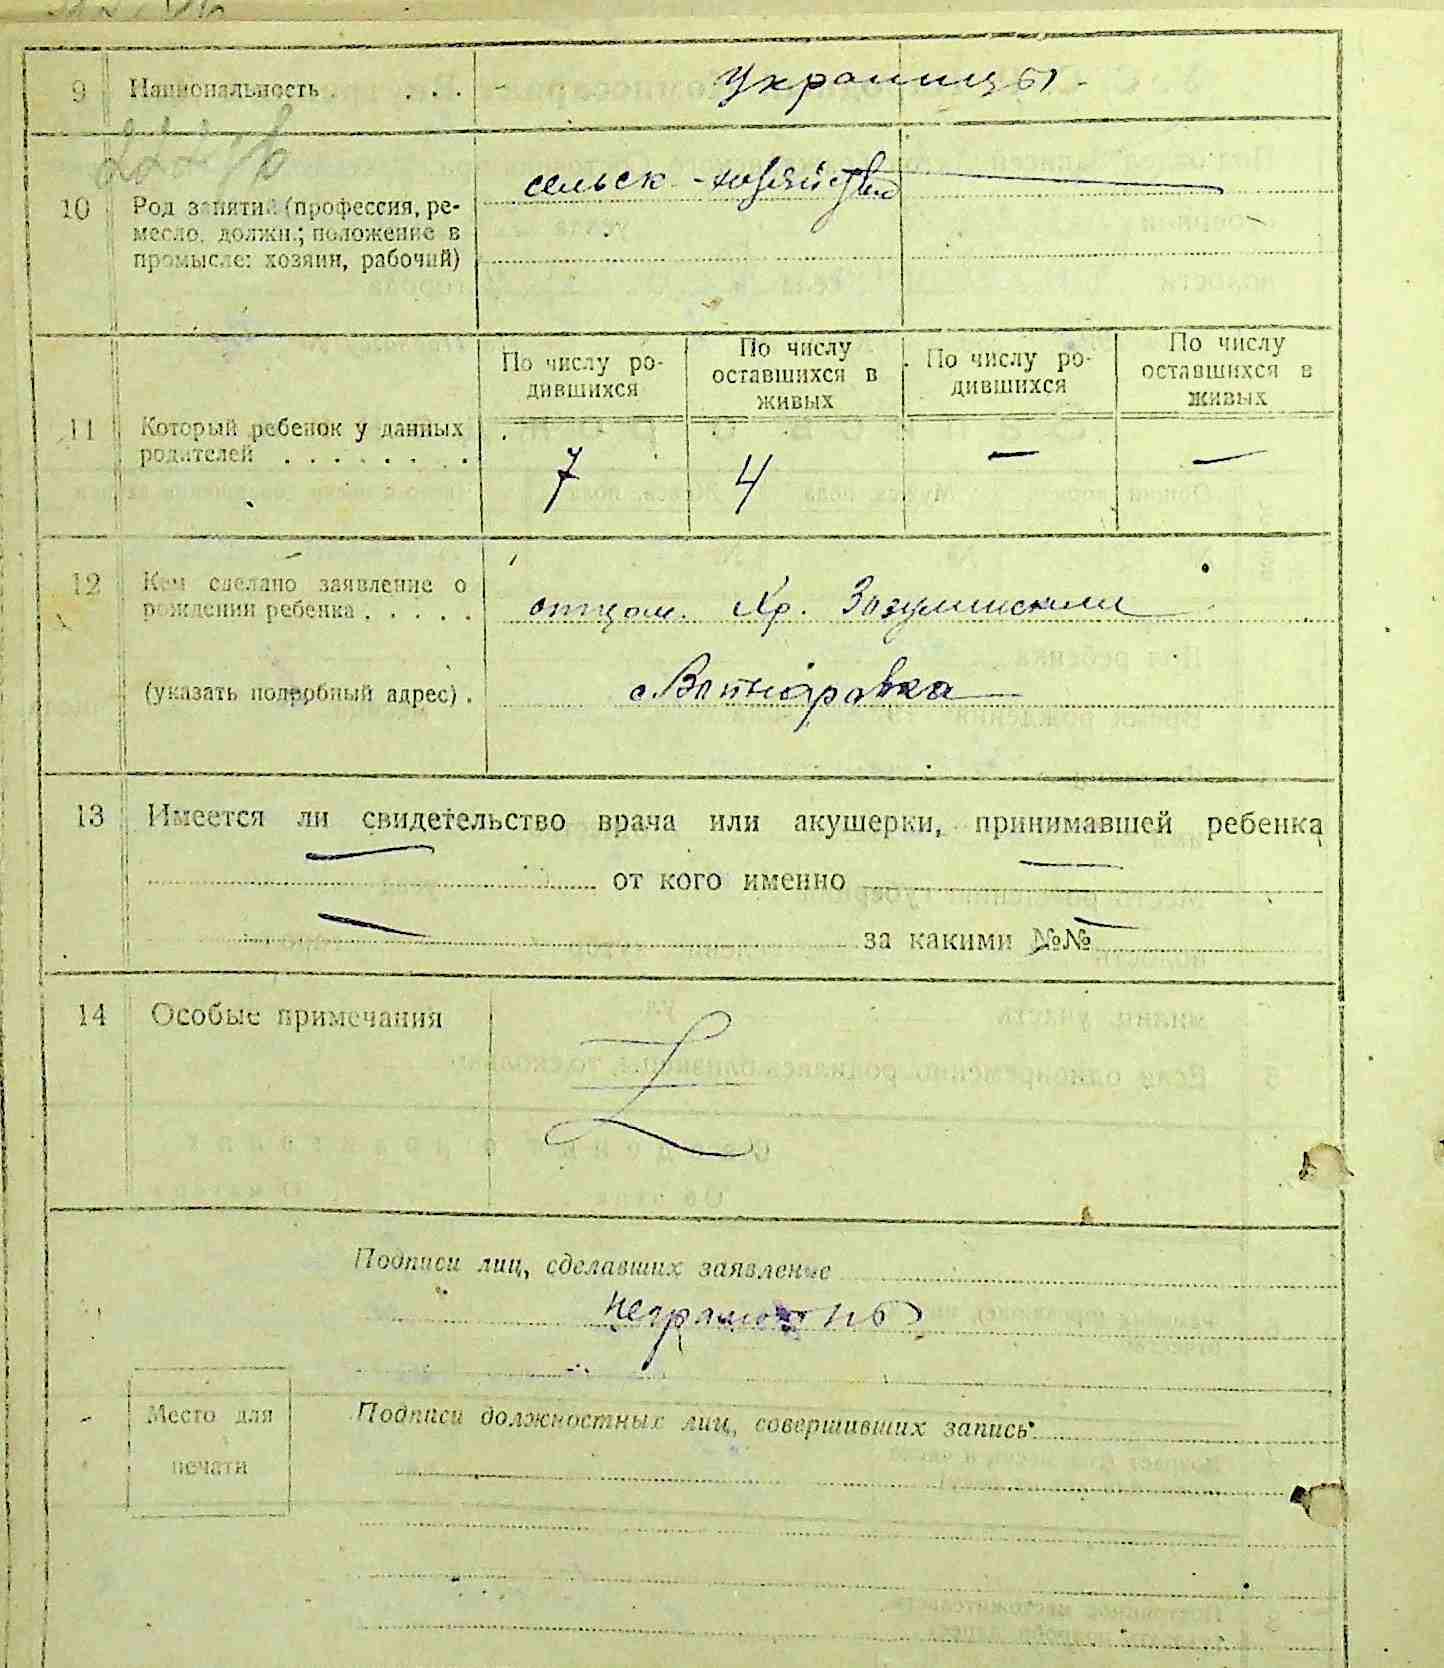 9 Национальность . . . . - Украинцы -
10 Род занятий (профессия, ре-
месло, должн.; положение в
промысле: хозяин, рабочий)
сельск - хозяйство
11 Который ребенок у данных
родителей . . . . . . . .
По числу ро-
дившихся
По числу
оставшихся в
живых
По числу ро-
дившихся
По числу
оставшихся в
живых
7 4 — —
12 Кем сделано заявление о
рождении ребенка . . . . .
отцом. Хр. Зозулинским
(указать подробный адрес) . с
13 Имеется ли свидетельство врача или акушерки, принимавшей ребенка
— от кого именно —
— за какими №№ —
14 Особые примечания
Подписи лиц, сделавших заявление
неграмотны
Место для
печати
Подписи должностных лиц, совершивших запись